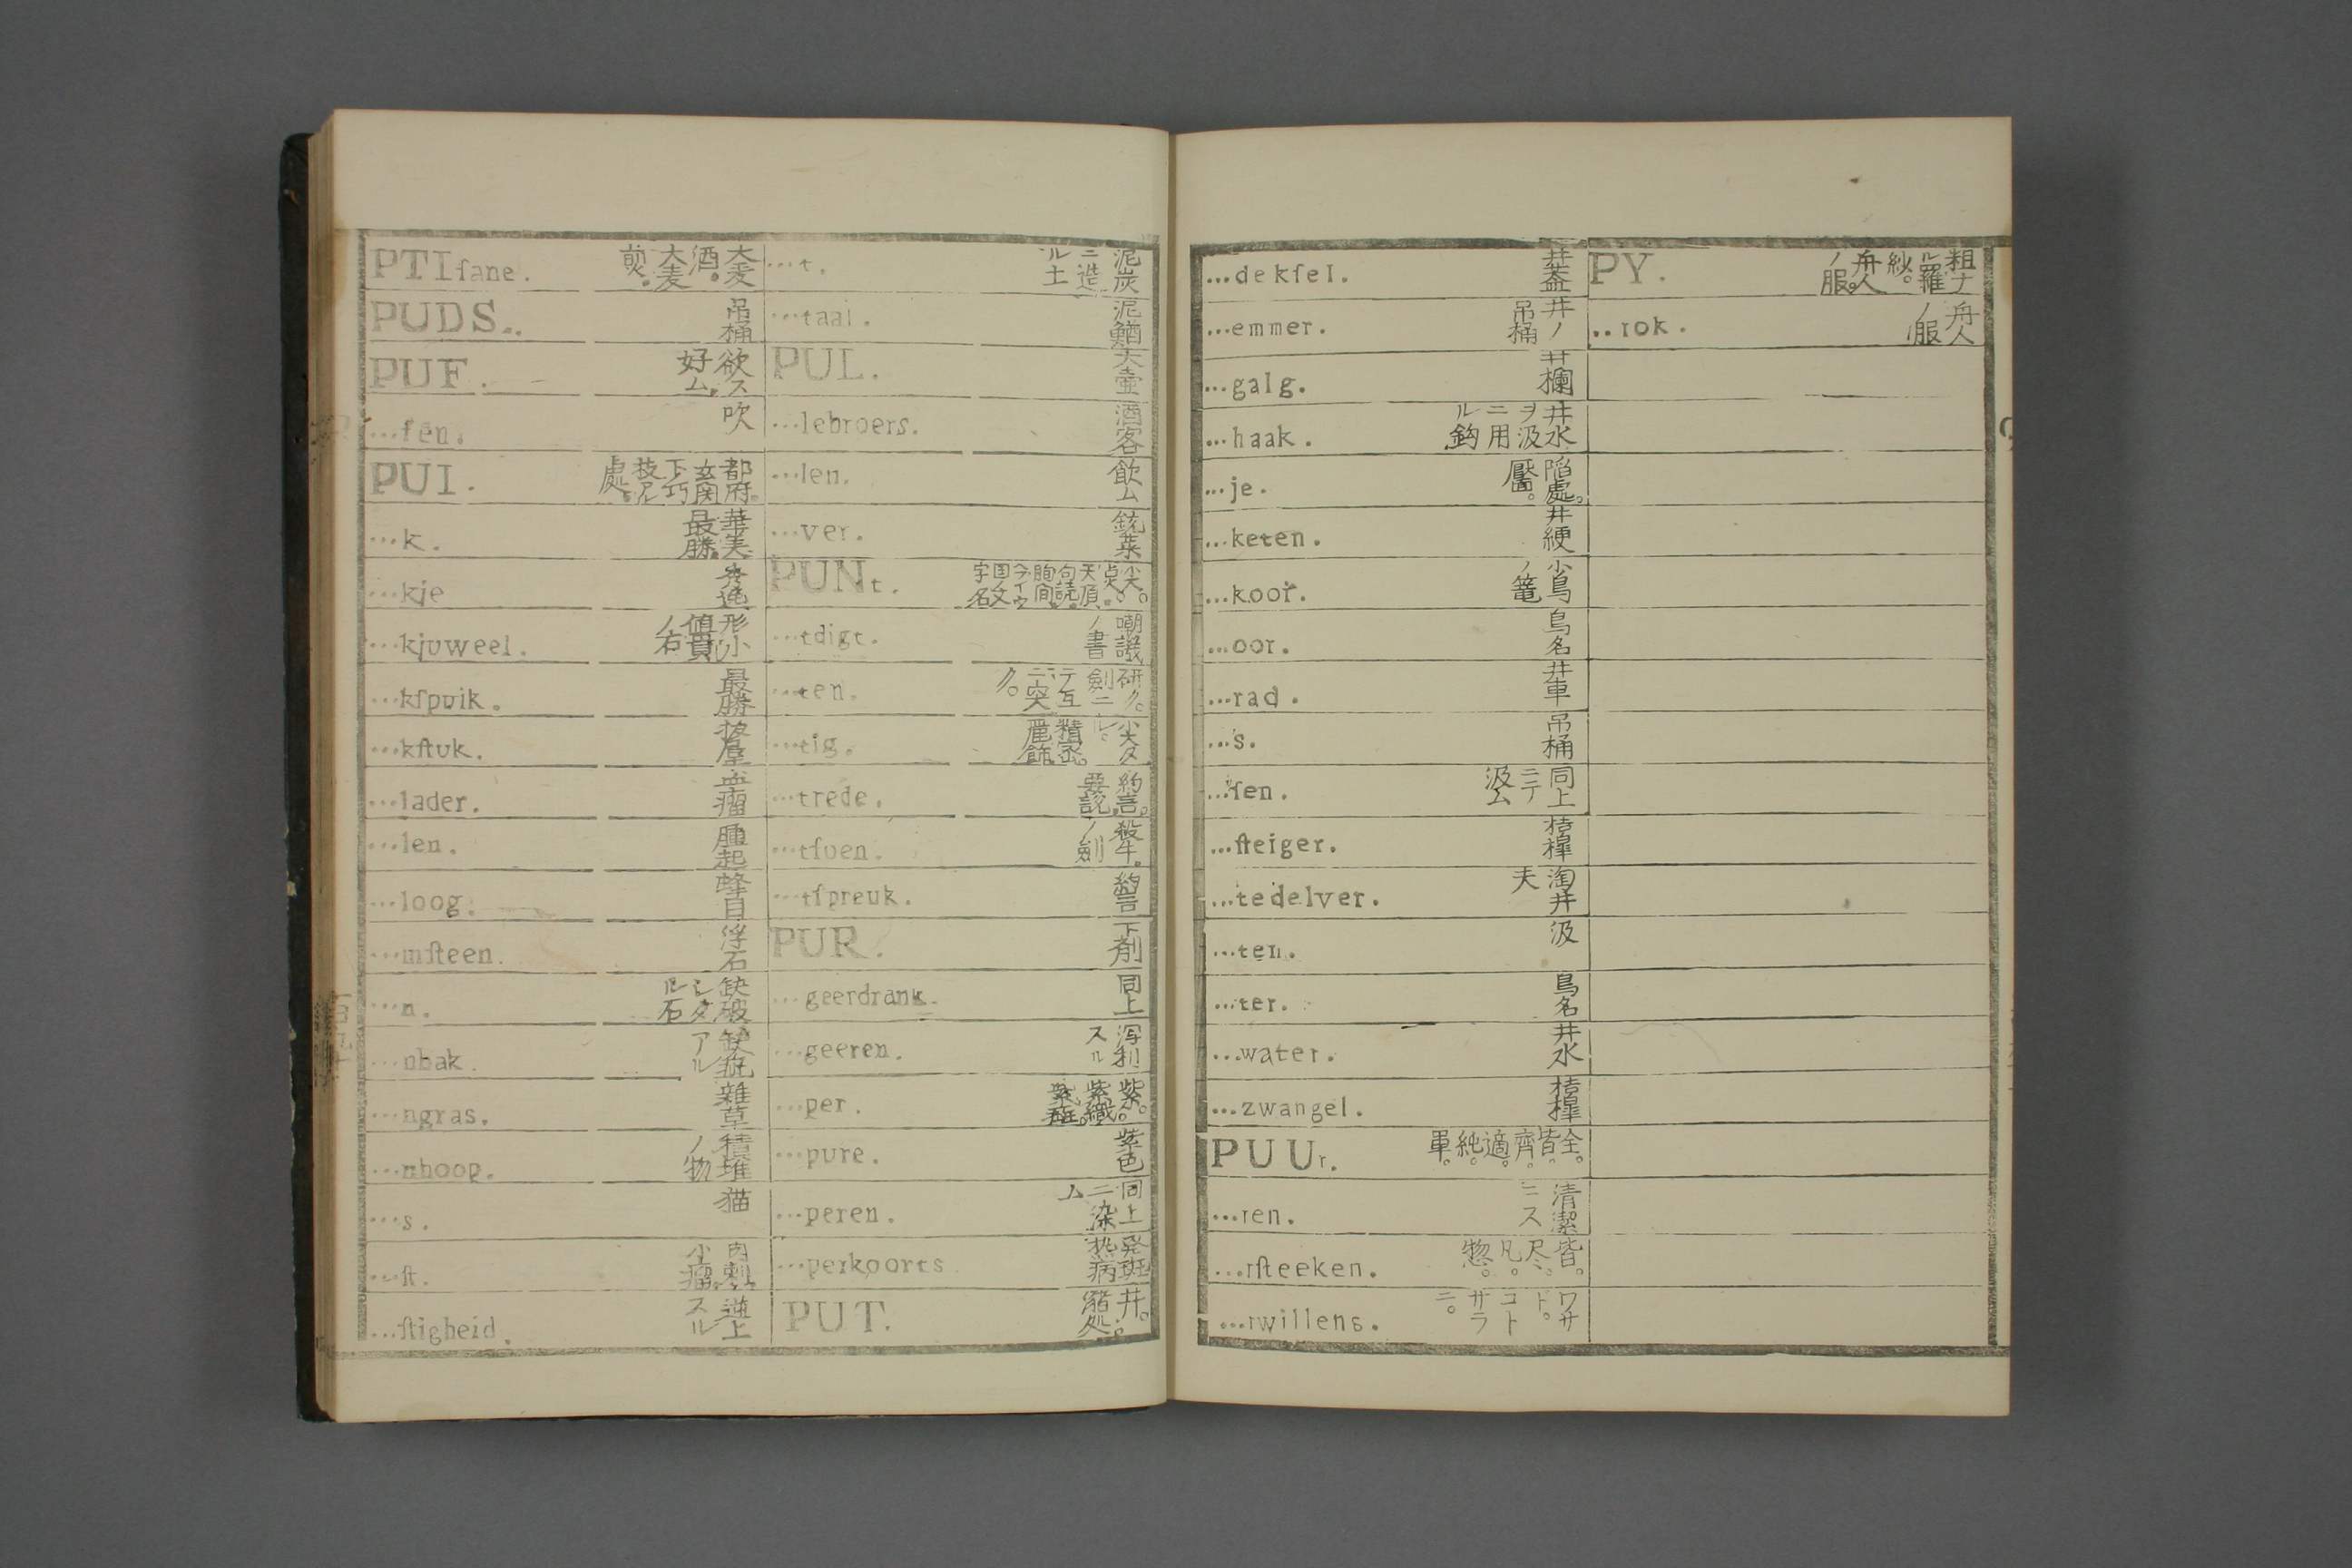 PTIſane. 大麦酒。大麦煎。
PUDS.. 吊桶
PUF. 欲ス好ム
...fen. 吹
PUI. 都府。玄関下ノ巧技アル處。
...k. 華美最勝
...kje
...kjuweel. 形小値貴ノ石
...kſpuik. 最勝
...kſtuk.
...lader. 血瘤
...len. 腫起
...loog. 蜂目
...mſteen. 浮石
...n. 缺破シタル石
...nbak. 缺疵アル
...ngras. 雜草
...nhoop. 積堆ノ物
...s. 猫
...ſt. 肉刺。小瘤。
...ſtigheid. 逆上スル
...t. 泥炭ニ造ル土
...taal. 泥鰌
PUL. 大壷
...lebroers. 酒客
...len. 飲ム
...ver. 銃薬
PUNt.
...tdigt. 嘲譏ノ書
...ten. 研ク。劍ニテ互ニ突ク。
...tig. 尖タル。精密。麗飾
...trede. 約言。要説
...tſuen.
...tſpreuk. 約言
PUR. 下剤
...geerdrank. 同上
...geeren. 泻利スル
...per. 紫。紫織。
...pure. 紫色
...peren. 同上ニ染ム
...perkoorts 発斑热病
PUT. 井。瀦処。
...dekſel. 井蓋
...emmer. 井ノ吊桶
...galg. 井欄
...haak. 井水ヲ汲ニ用ル鈎
...je. 陷處。靨。
...keten. 井綆
...koor. 小鳥ノ篭
...oor. 鳥名
...rad. 井車
...s. 吊桶
...ſen. 同上ニテ汲ム
...ſteiger. 桔槹
...tedelver. 淘井夫
...ten. 汲
...ter. 鳥名
...water. 井水
...zwangel. 桔槹
PUUr. 全。皆。齊。適。純。單。
...ren. 清潔ニス
...rſteeken. 皆。尽。凡。惣。
...rwillens. ワザト。コトサラニ。
PY. 粗ナル羅紗。舟人ノ服。
..rok. 舟人ノ服